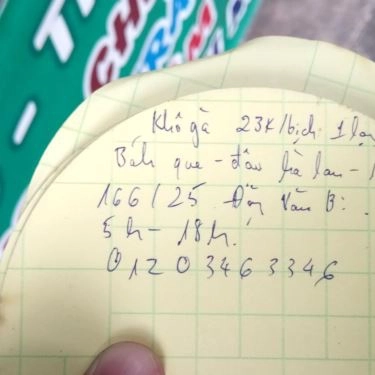 Khô gà 23K/bịch 1 lạn
Bánh que - đậu hà lan -
166/25 Đặng Văn Bi
5h - 18h.
0120 3463346